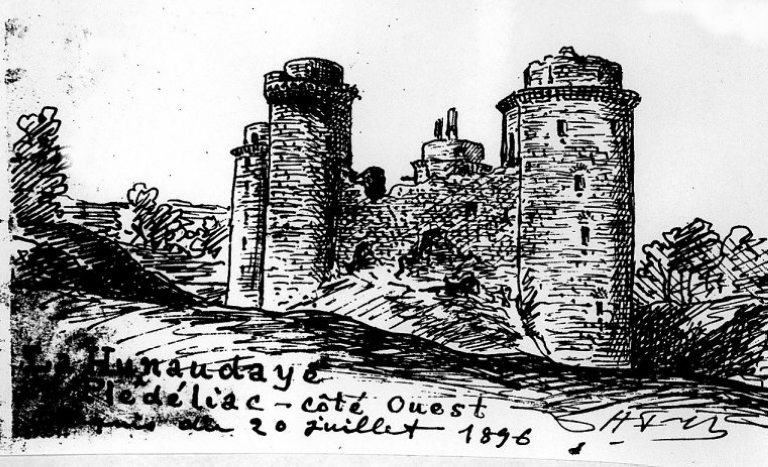 La Hunaudaye
Plédéliac - côté Ouest
du 20 juillet 1896